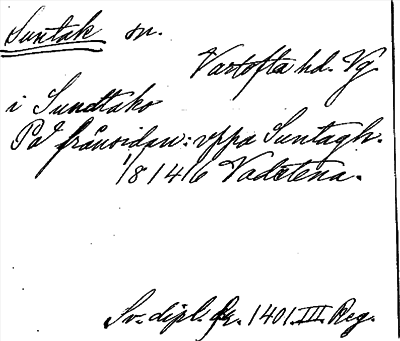 Suntak sn.
Vartofta hd. Vg.
i Sundtako
På frånsidan: uppa Suntagh.
1/8 1416 Vadstena.
Sv. dipl. fr. 1401. III. Reg.